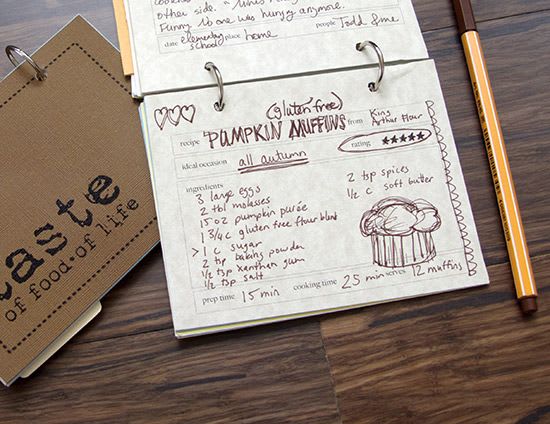 other side.
Funny is one was hungry anymore.
date elementary school place home people Todd & me
♡♡♡ (gluten free)
recipe PUMPKIN MUFFINS from King Arthur Flour
ideal occasion all autumn rating ★★★★★
ingredients
3 large eggs
2 tbl molasses
15 oz pumpkin purée
1 3/4 c gluten free flour blend
> 1 c sugar
2 tsp baking powder
1/2 tsp xanthan gum
1/2 tsp salt
2 tsp spices
1/2 c soft butter
prep time 15 min cooking time 25 min serves 12 muffins
taste
of food of life